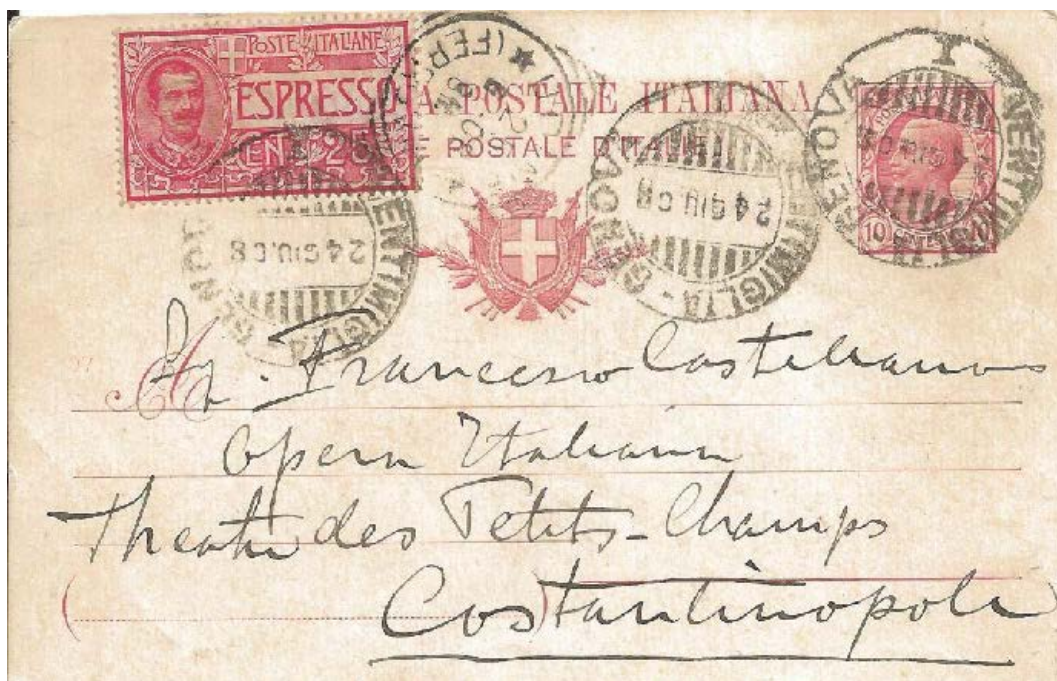 POSTE ITALIANE
ESPRESSO
CENT. 25
A POSTALE ITALIANA
E POSTALE D'ITALIE
(FER
VENTIMIGLIA - GENOVA
24 GIU. 08
VENTIMIGLIA - GENOVA
24 GIU. 08
VENTIMIGLIA GENOVA
24 GIU 08
10 CENT 10
A
Sg. Francesco Castellano
Opera Italiana
Theatre des Petits-Champs
Costantinopoli